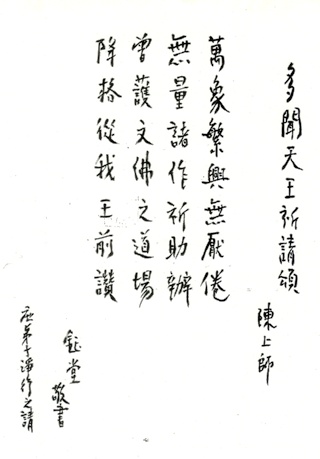 多聞天王祈請頌
陳上師
萬象繁興無厭倦
無量諸作祈助辦
曾護文佛之道場
降格從我王前讚
鈺堂
敬書
应弟子淨行之請